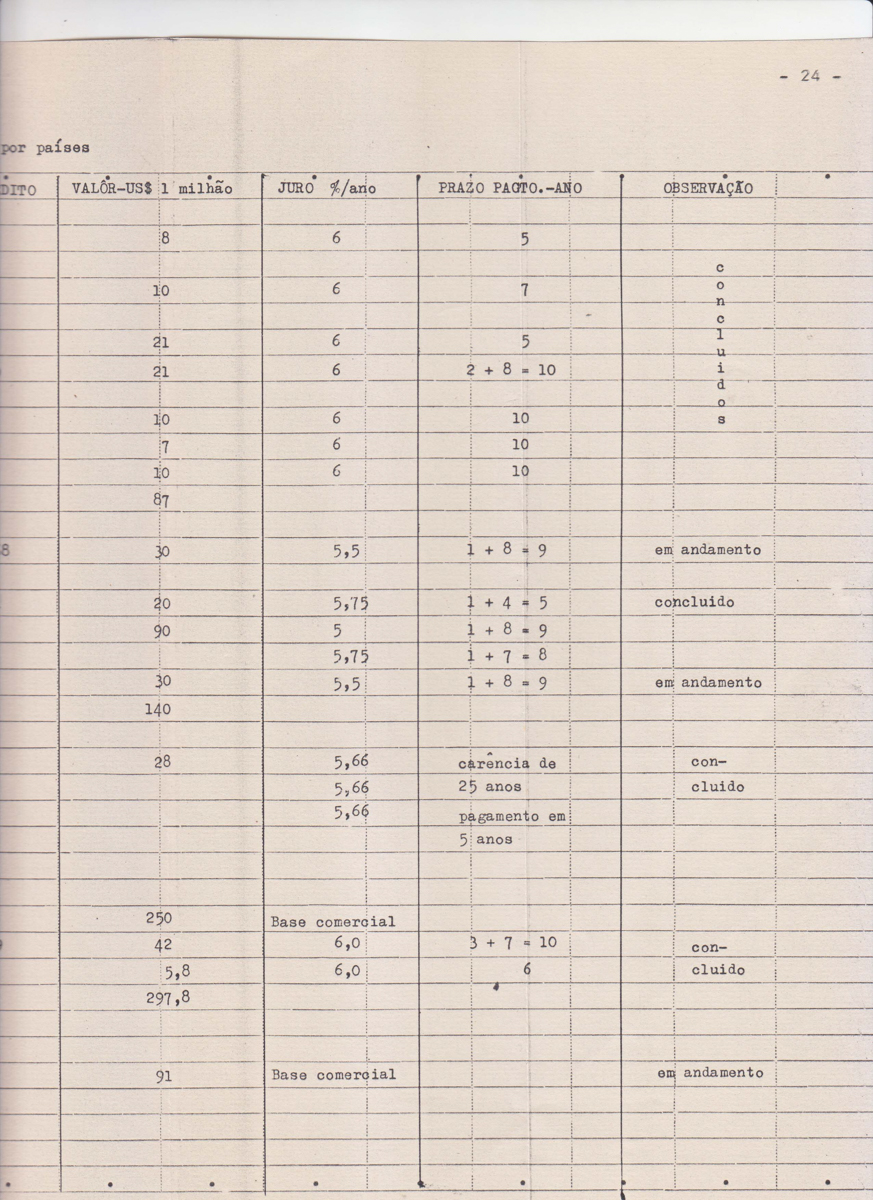 - 24 -
por países
DITO VALÔR-US$ 1 milhão JURO %/ano PRAZO PAGTO.-ANO OBSERVAÇÃO
8 6 5
10 6 7
21 6 5
21 6 2 + 8 = 10
10 6 10
7 6 10
10 6 10
87
concluidos
8 30 5,5 1 + 8 = 9 em andamento
20 5,75 1 + 4 = 5 concluido
90 5 1 + 8 = 9
5,75 1 + 7 = 8
30 5,5 1 + 8 = 9 em andamento
140
28 5,66 carência de con-
5,66 25 anos cluido
5,66 pagamento em
5 anos
250 Base comercial
42 6,0 3 + 7 = 10 con-
5,8 6,0 6 cluido
297,8
91 Base comercial em andamento